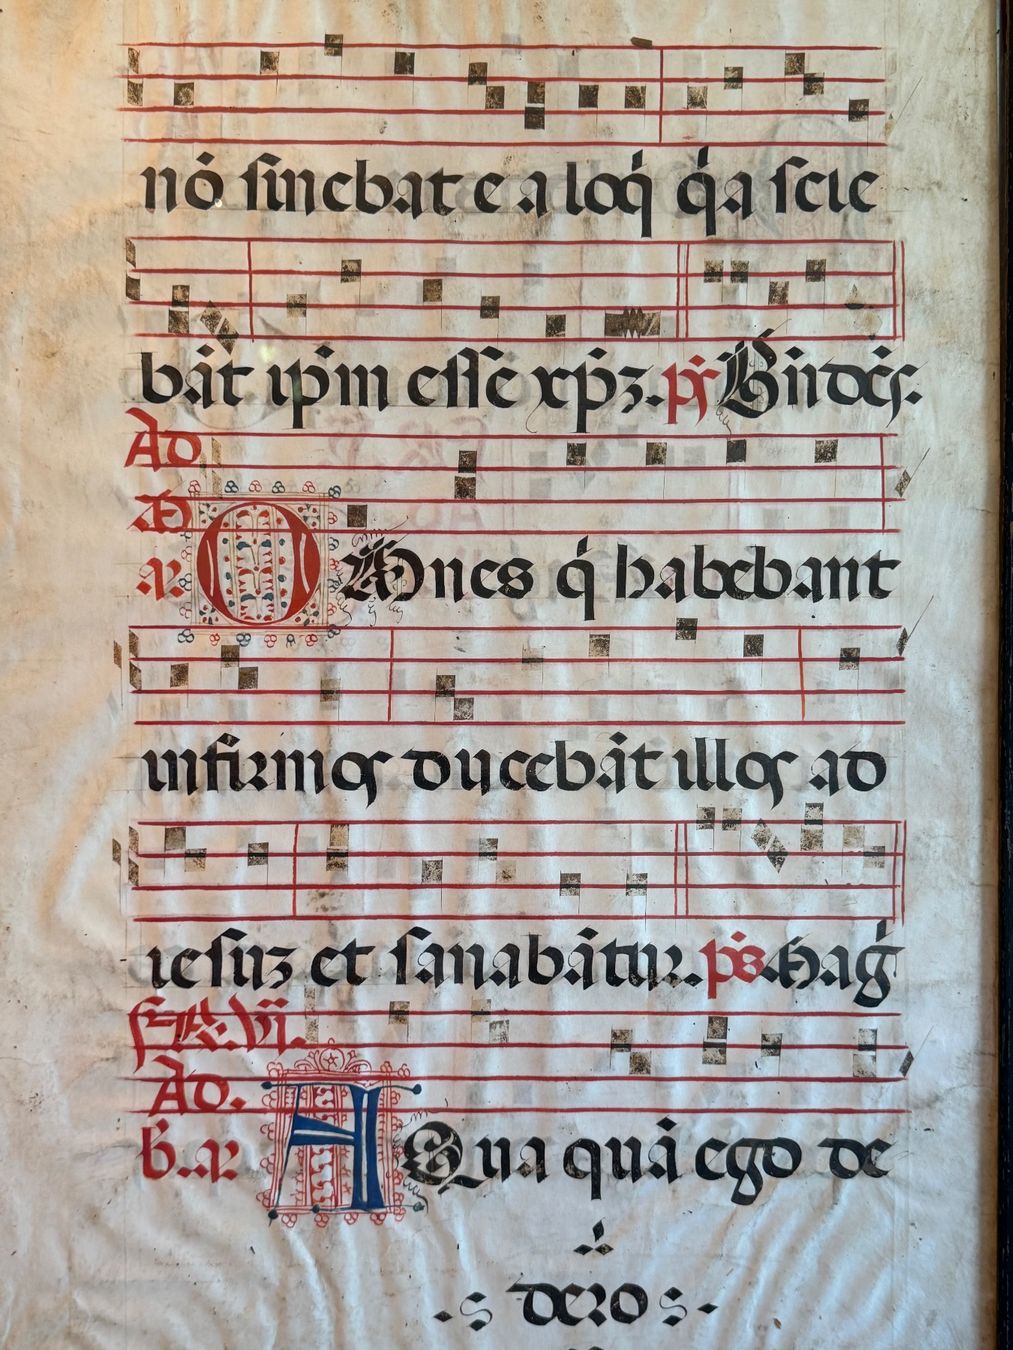 nō sinebat ea loq̇ q̇a scie
bāt ip̄m esse xp̄ꝫ. p̄s Bn̄dic̄s.
Ad
M OMnes q̇ habebant
ar
infirmos ducebāt illos ad
iesuꝫ et sanabātur. p̄s Maġ
fe͞r. vj.
Ad.
b. ar AQua quā ego de
dero